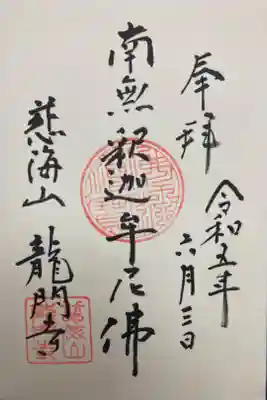 奉拝
令和五年
六月三日
南無釋迦牟尼佛
慈海山
龍門寺